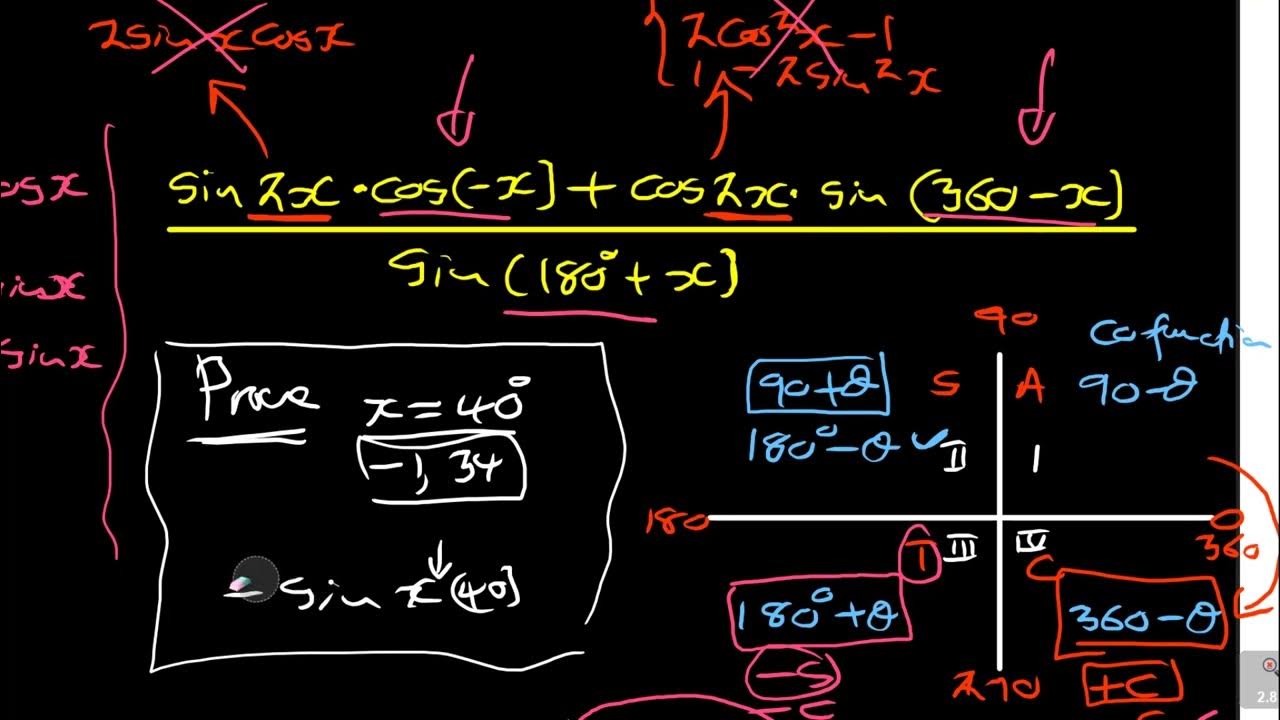 2sinxcosx
2cos²x-1
1-2sin²x
sin2x·cos(-x)+cos2x·sin(360-x)
sin(180°+x)
cosx
sinx
sinx
Prove
x=40°
-1,34
-sin x(40)
90
Cofunction
90+θ S A 90-θ
180°-θ II I
180 0
360
T III IV
C
180°+θ 360-θ
-S
-C
270 +C
2.8